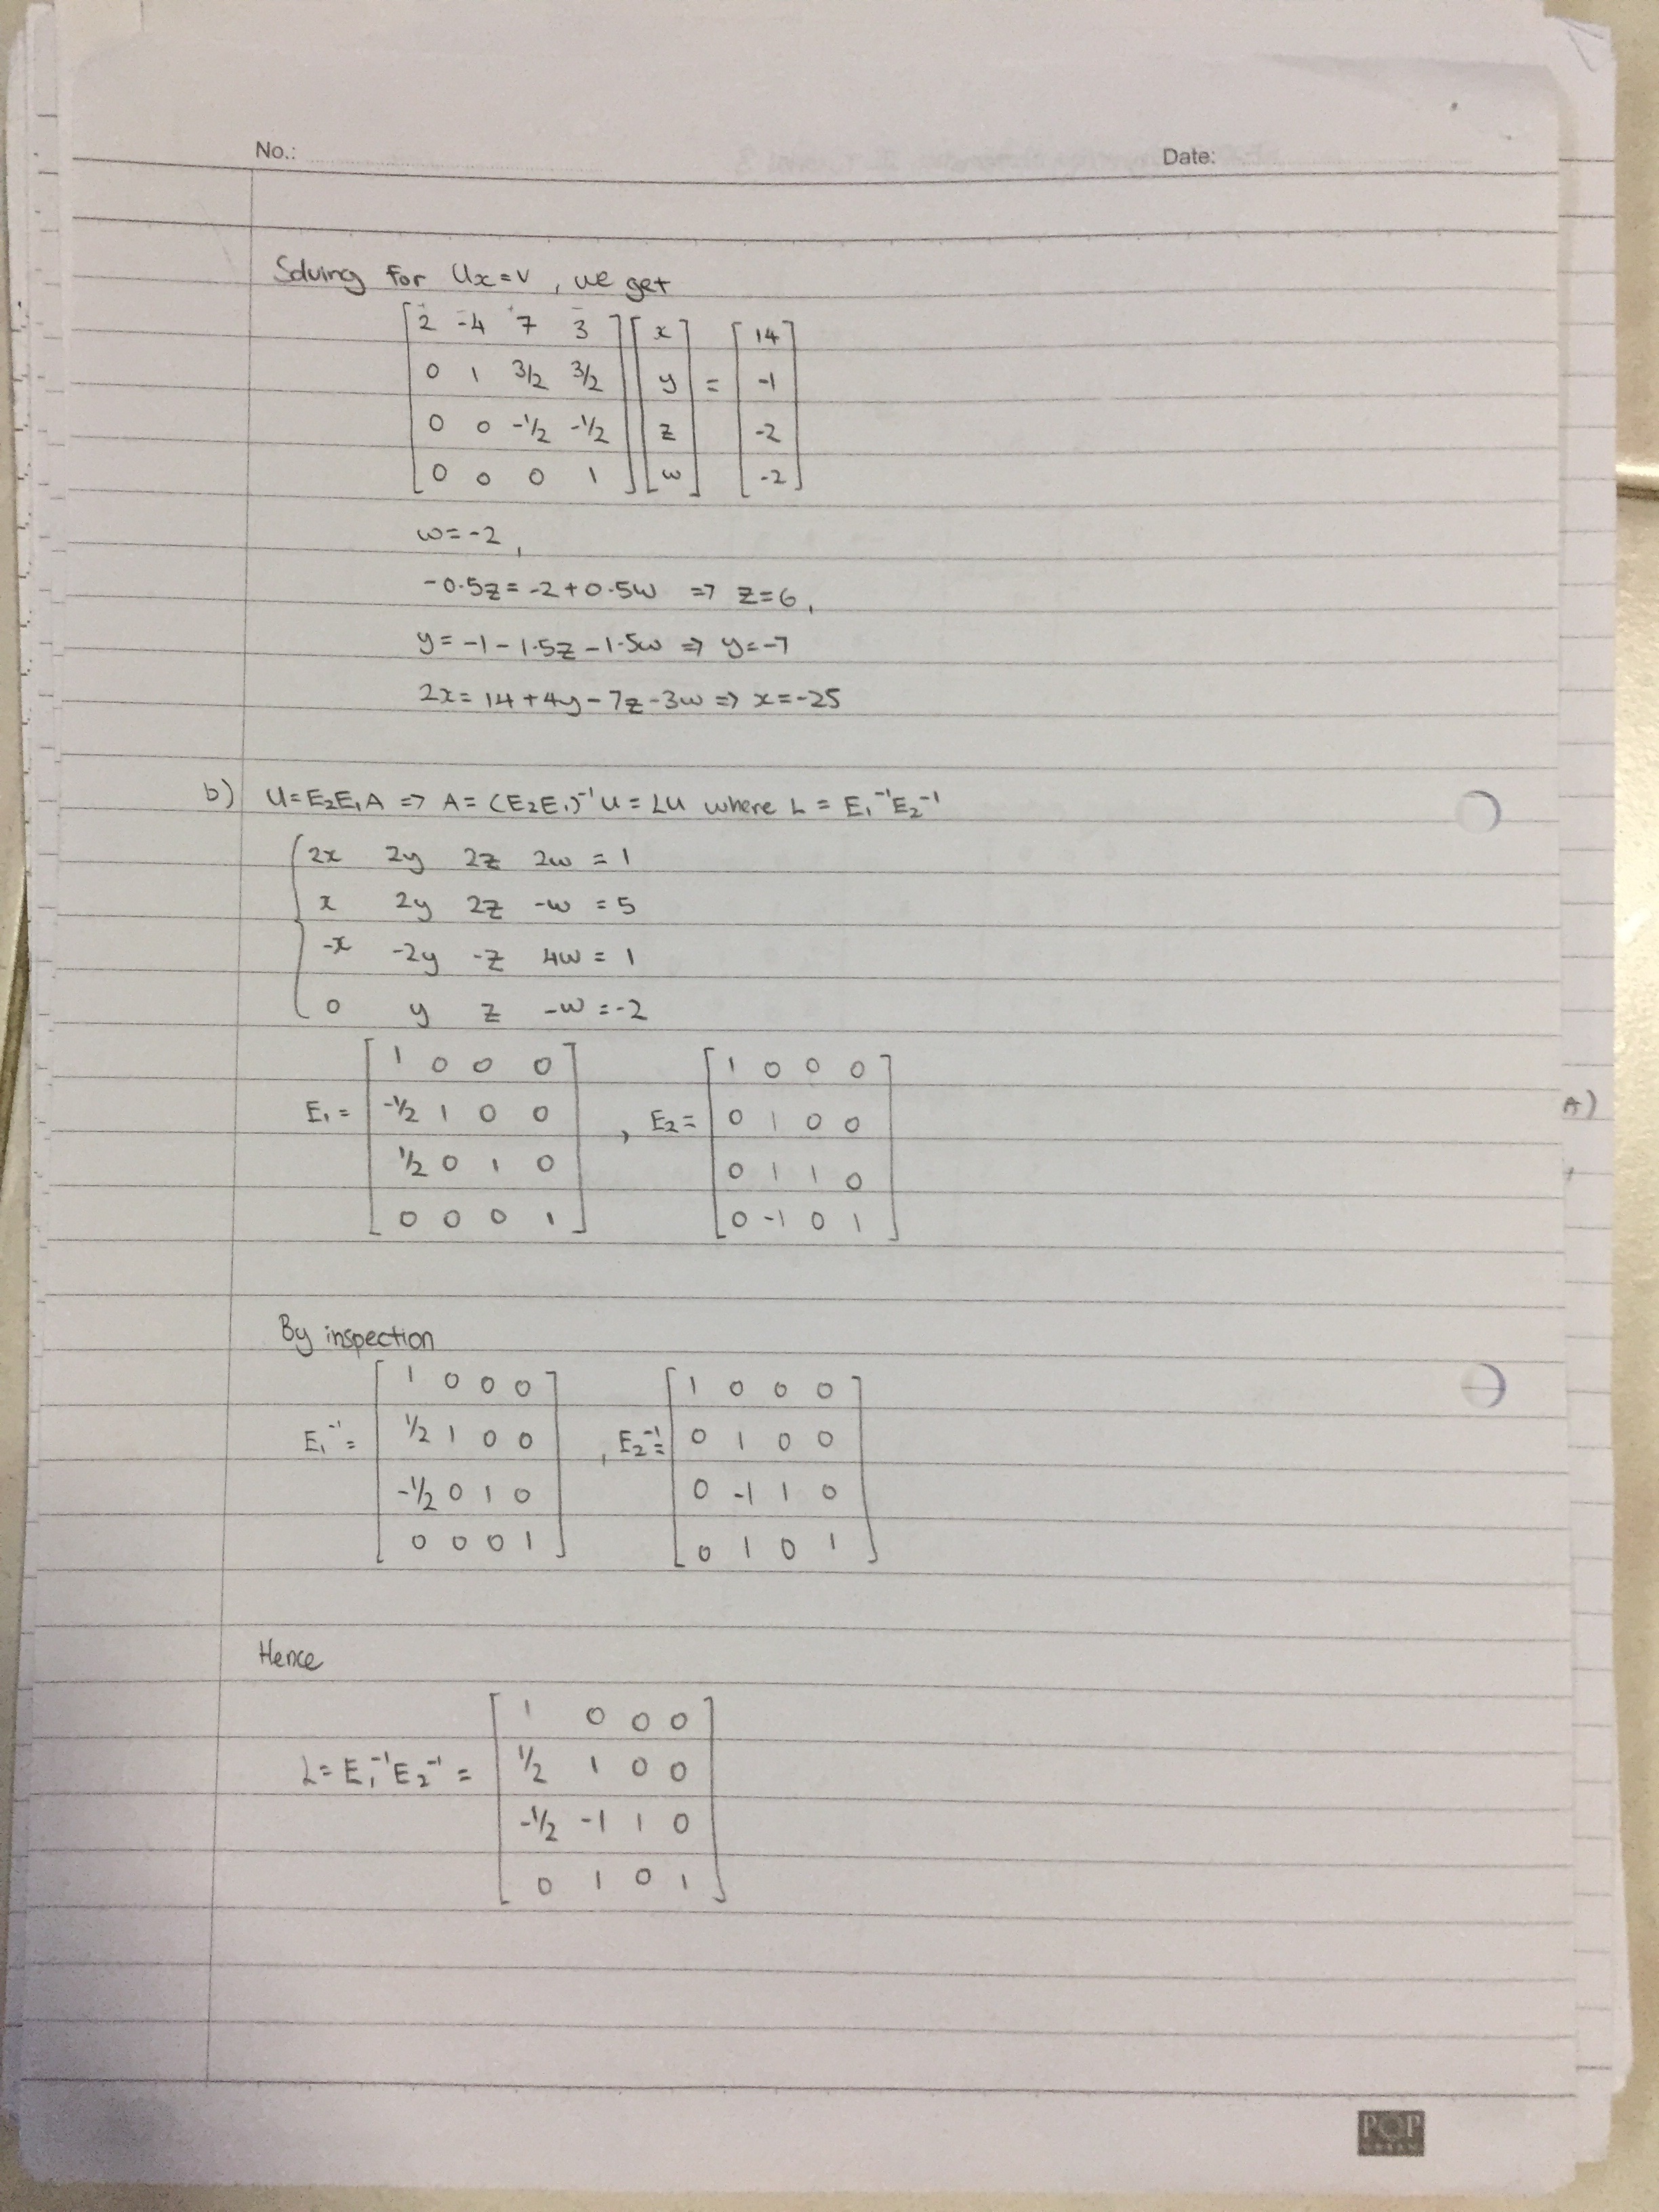 No.:
Date:
Solving for Ux=v, we get
[2 -4 7 3] [x] = [14]
[0 1 3/2 3/2] [y] [-1]
[0 0 -1/2 -1/2] [z] [-2]
[0 0 0 1] [w] [-2]
w=-2,
-0.5z=-2+0.5w => z=6,
y=-1-1.5z-1.5w => y=-7
2x=14+4y-7z-3w => x=-25
b) U=E₂E₁A => A=(E₂E₁)⁻¹U=LU where L=E₁⁻¹E₂⁻¹
2x 2y 2z 2w = 1
x 2y 2z -w = 5
-x -2y -z 4w = 1
0 y z -w = -2
E₁= [1 0 0 0] , E₂= [1 0 0 0]
[-1/2 1 0 0] [0 1 0 0]
[1/2 0 1 0] [0 1 1 0]
[0 0 0 1] [0 -1 0 1]
A)
By inspection
E₁⁻¹= [1 0 0 0] , E₂⁻¹= [1 0 0 0]
[1/2 1 0 0] [0 1 0 0]
[-1/2 0 1 0] [0 -1 1 0]
[0 0 0 1] [0 1 0 1]
Hence
L=E₁⁻¹E₂⁻¹= [1 0 0 0]
[1/2 1 0 0]
[-1/2 -1 1 0]
[0 1 0 1]
POP